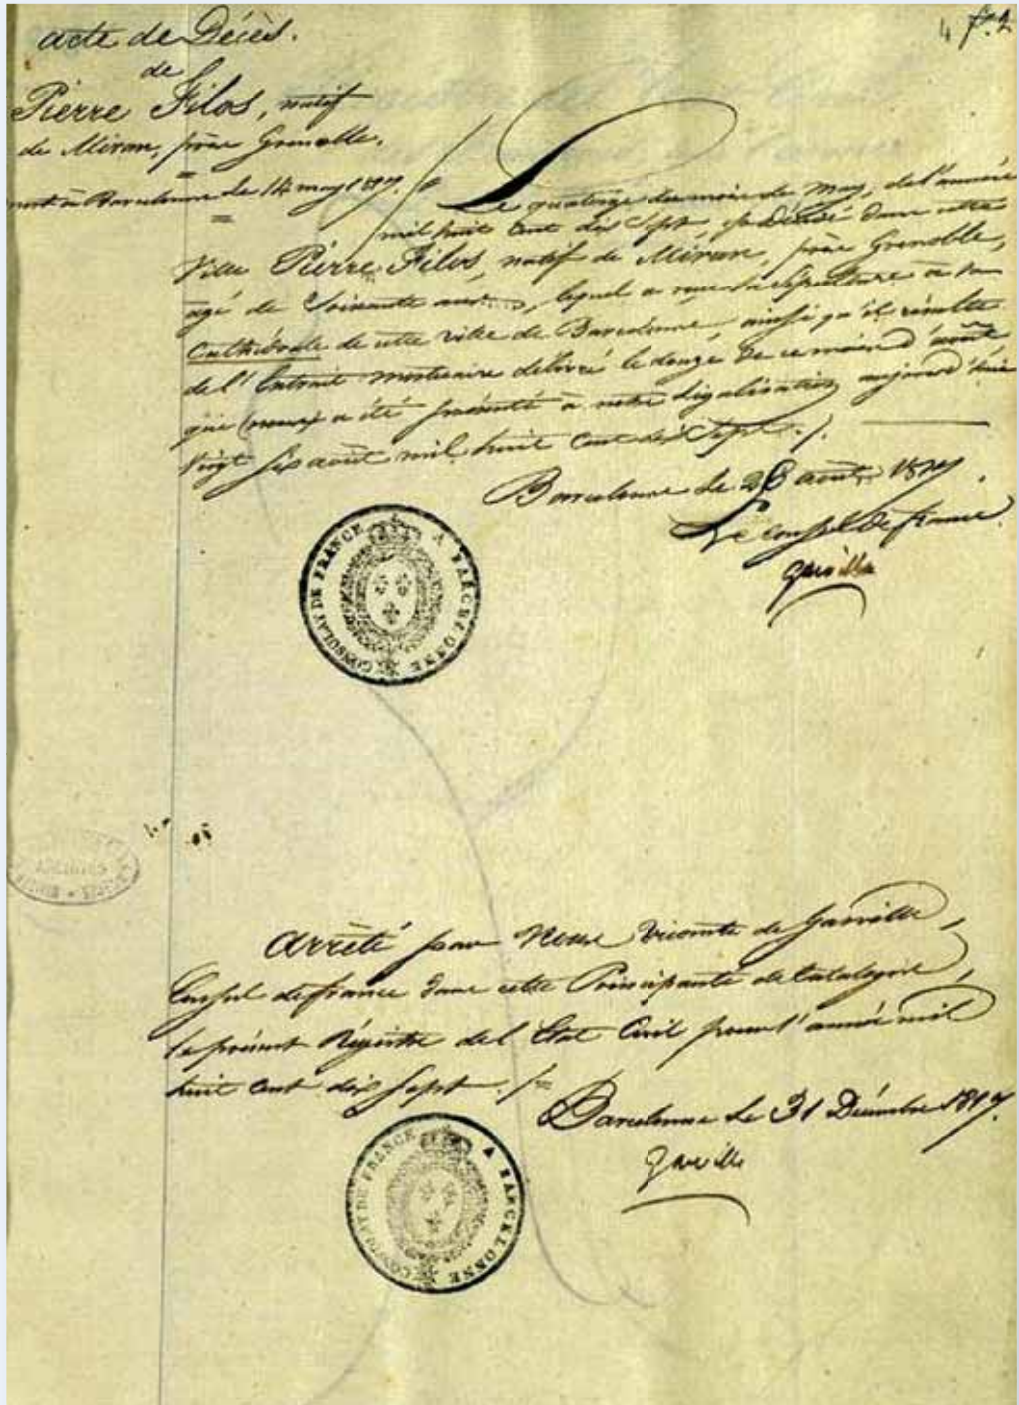 4 fo. 2
acte de Décès.
de
Pierre Filos, natif
de Miran, près Grenoble.
mort à Barcelonne le 14 may 1817.
Le quatorze du mois de May, de l'année
mil huit cent dix sept, est Décédé dans cette
Ville Pierre Filos, natif de Miran, près Grenoble,
agé de Soixante ans, lequel a reçu la sépulture à la
Cathédrale de cette ville de Barcelonne, ainsi qu'il résulte
de l'Extrait mortuaire délivré le douze de ce mois d'août
qui (nous) a été présenté à notre Légalisation aujourd'hui
Vingt six août mil huit Cent dix Sept ./.
Barcelonne le 26 août 1817.
Le consul de france.
Gasville
CONSULAT DE FRANCE A BARCELONNE
ARCHIVES
Arrêté par Nous Vicomte de Gasville,
Consul de france dans cette Principauté de Catalogne,
le présent Régistre de l'Etat Civil pour l'année mil
huit Cent dix Sept ./=
Barcelonne le 31 Décembre 1817.
Gasville
CONSULAT DE FRANCE A BARCELONNE